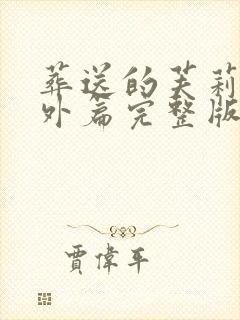 葬送的芙莉
外篇完整版
賈偉平